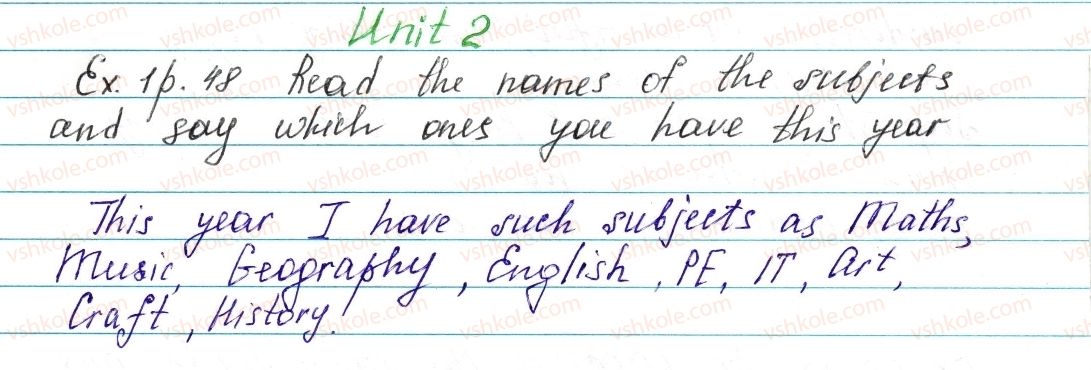 Unit 2
Ex. 1 p. 48 Read the names of the subjects
and say which ones you have this year
This year I have such subjects as Maths,
Music, Geography, English, PE, IT, Art,
Craft, History.